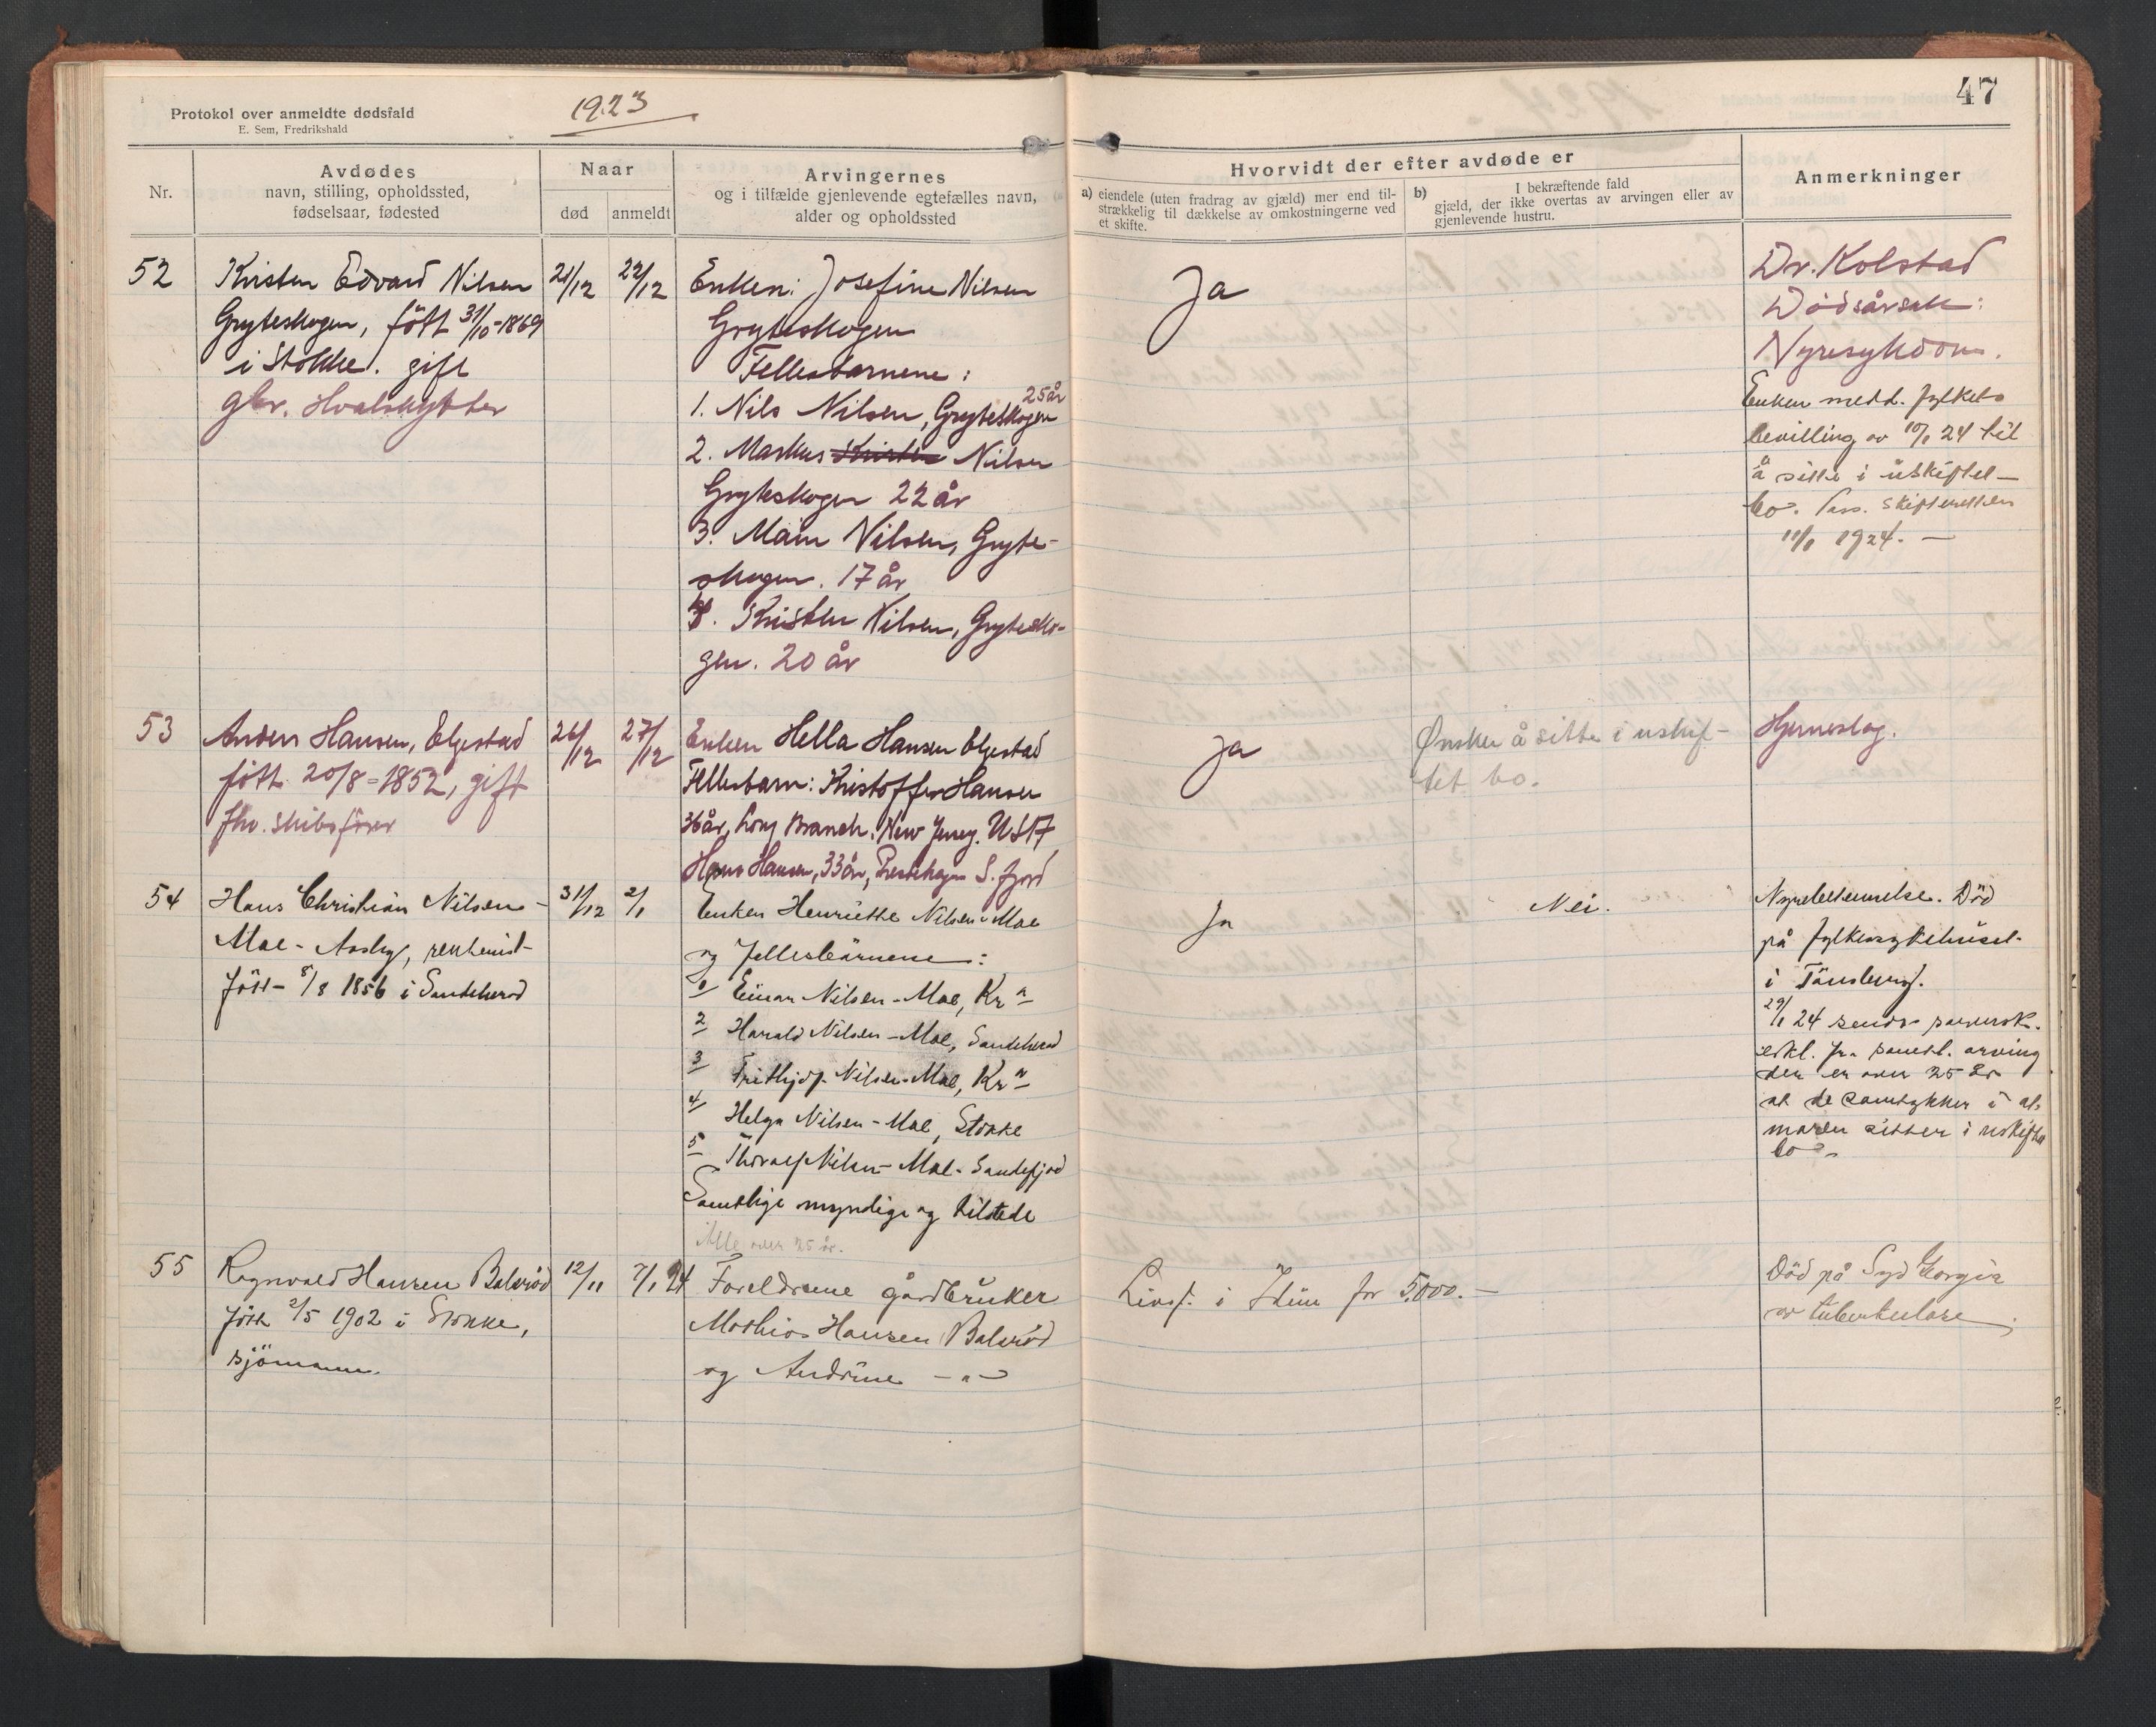 Protokol over anmeldte dødsfald
E. Sem, Fredrikshald
1923
47
Nr.
Avdødes
navn, stilling, opholdssted,
fødselsaar, fødested
Naar
død
anmeldt
Arvingernes
og i tilfælde gjenlevende egtefælles navn,
alder og opholdssted
Hvorvidt der efter avdøde er
a) eiendele (uten fradrag av gjæld) mer end til-
strækkelig til dækkelse av omkostningerne ved
et skifte.
b) I bekræftende fald
gjæld, der ikke overtas av arvingen eller av
gjenlevende hustru.
Anmerkninger
52
Kristen Edvard Nilsen
Gryteskogen, født 31/10-1869
i Stokke. gift
gbr. Hvalskytter
21/12
22/12
Enken: Josefine Nilsen
Gryteskogen
Fellesbarnene:
25 år
1. Nils Nilsen, Gryteskogen
2. Markus Kristen Nilsen
Gryteskogen 22 år
3. Maim Nilsen, Gryte-
skogen. 17 år
4. Kristen Nilsen, Grytesko-
gen. 20 år
Ja
Dr. Kolstad
Dødsårsak:
Nyresykdom.
Enken medd. fylkets
bevilling av 10/1 24 til
å sitte i uskiftet
bo. Pass. skifteretten
11/1 1924. —
53
Anders Hansen, Elgestad
født 20/8-1852, gift
fhv. skibsfører
26/12
27/12
Enken Hella Hansen Elgestad
Fellesbarn: Kristoffer Hansen
36 år, Long Branch. New Jersey. USA
Hans Hansen, 33 år, Presteskogen S. fjord
Ja
Ønsker å sitte i uskif-
tet bo.
Hjerneslag.
54
Hans Christian Nilsen-
Moe - Aasly, rentenist
født 8/8 1856 i Sandeherad
31/12
2/1
Enken Henriette Nilsen-Moe
og fellesbarnene:
1/ Einar Nilsen-Moe, Kra
2 Harald Nilsen-Moe, Sandeherad
3 Frithjof Nilsen-Moe, Kra
4/ Helga Nilsen-Moe, Stokke
5 Thoralf Nilsen-Moe-Sandefjord
Samtlige myndige og tilstede
Alle over 25 år.
Ja
Nei.
Nyrebetennelse. Død
på fylkessykehuset
i Tønsberg.
29/1 24 sendt
erkl. fra samtl. arving
der er over 25 år
at de samtykker i at
moren sitter i uskiftet
bo
55
Ragnvald Hansen Balerød
født 2/5 1902 i Stokke,
sjømann.
12/11
7/1 24
Foreldrene gårdbruker
Mathias Hansen Balerød
og Andrine — " —
Livsf. i Idun for 5.000. —
Død på Syd Georgia
av tuberkulose.